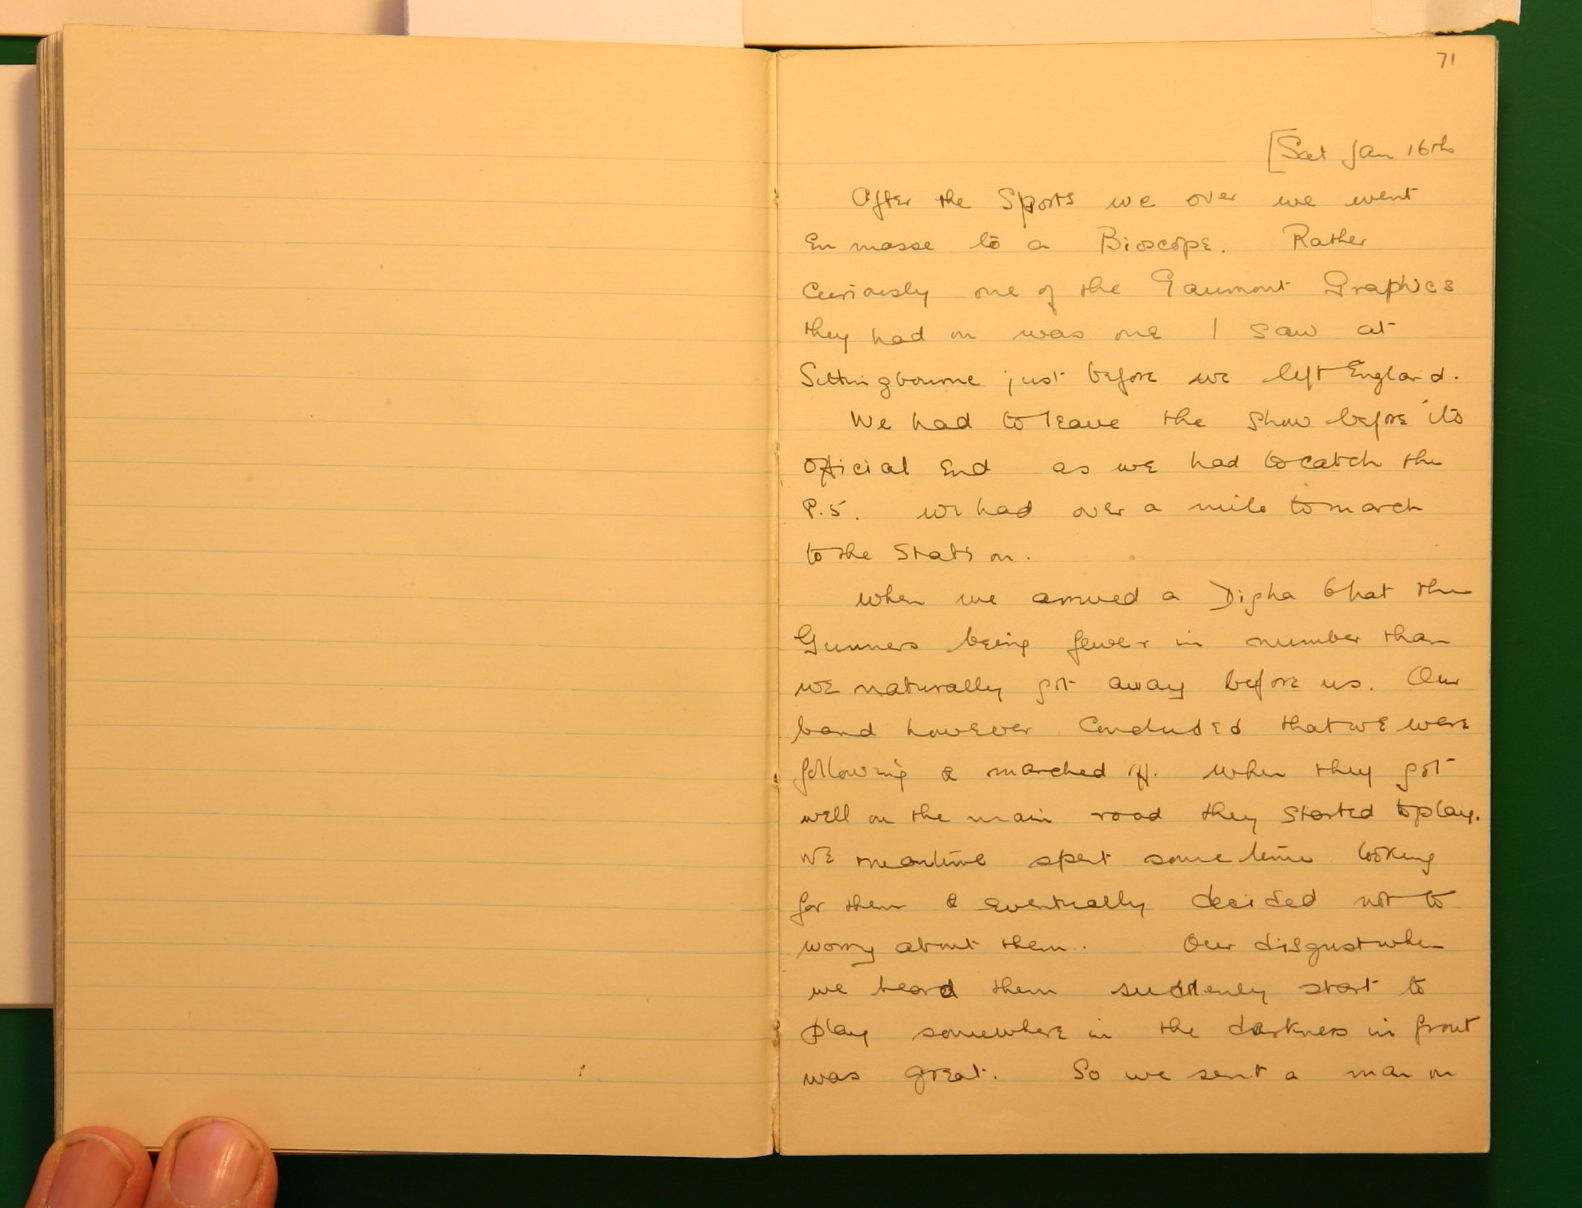 71
[Sat Jan 16th
After the Sports we over we went
en masse to a Bioscope. Rather
curiously one of the Gaumont Graphics
they had on was one I saw at
Sittingbourne just before we left England.
We had to leave the show before its
official end as we had to catch the
P.5. We had over a mile to march
to the station.
When we arrived a Digha Ghat the
Gunners being fewer in number than
we naturally got away before us. Our
band however concluded that we were
following & marched off. When they got
well on the main road they started to play.
We meantime spent some time looking
for them & eventually decided not to
worry about them. Our disgust when
we heard them suddenly start to
play somewhere in the darkness in front
was great. So we sent a man on